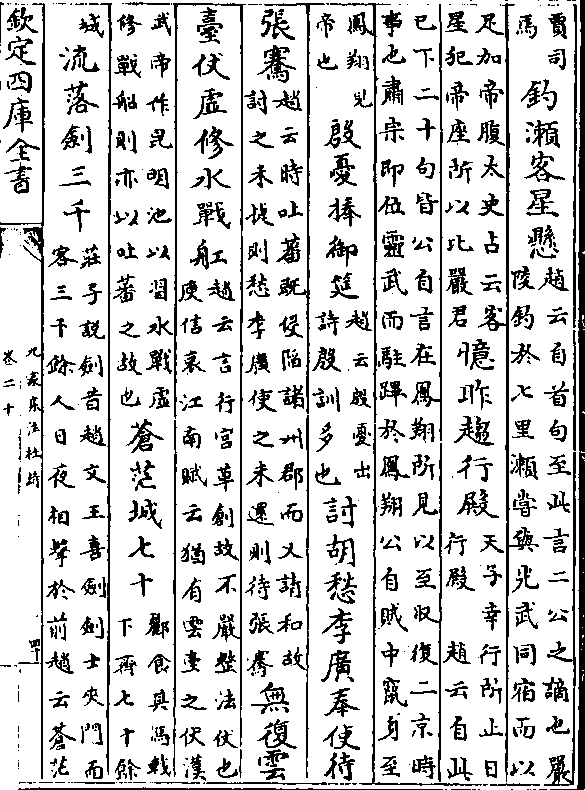 賈司
馬
釣瀨客星懸
趙云自首句至此言二公之謫也嚴
陵釣於七里瀨嘗與光武同宿而以
足加帝腹太史占云客
星犯帝座所以比嚴君
憶昨趨行殿
天子幸行所止曰
行殿 趙云自此
已下二十句皆公自言在鳳翔所見以至収復二京時
事也肅宗即位靈武而駐蹕於鳳翔公自賊中竄身至
鳳翔見
帝也
殷憂捧御筵
趙云殷憂出
詩殷訓多也
討胡愁李廣奉使待
張騫
趙云時吐蕃既侵陷諸州郡而又請和故
討之未捷則愁李廣使之未還則待張騫
無復雲
臺仗虛修水戰舡
趙云言行宮草創故不嚴整法仗也
庾信哀江南賦云猶有雲臺之仗漢
武帝作昆明池以習水戰虛
修戰船則亦以吐蕃之故也
蒼茫城七十
酈食其馮軾
下齊七十餘
城
流落劍三千
莊子説劍昔趙文王喜劍劍士夾門而
客三千餘人日夜相擊於前趙云蒼茫
欽定四庫全書
九家集注杜詩
卷二十